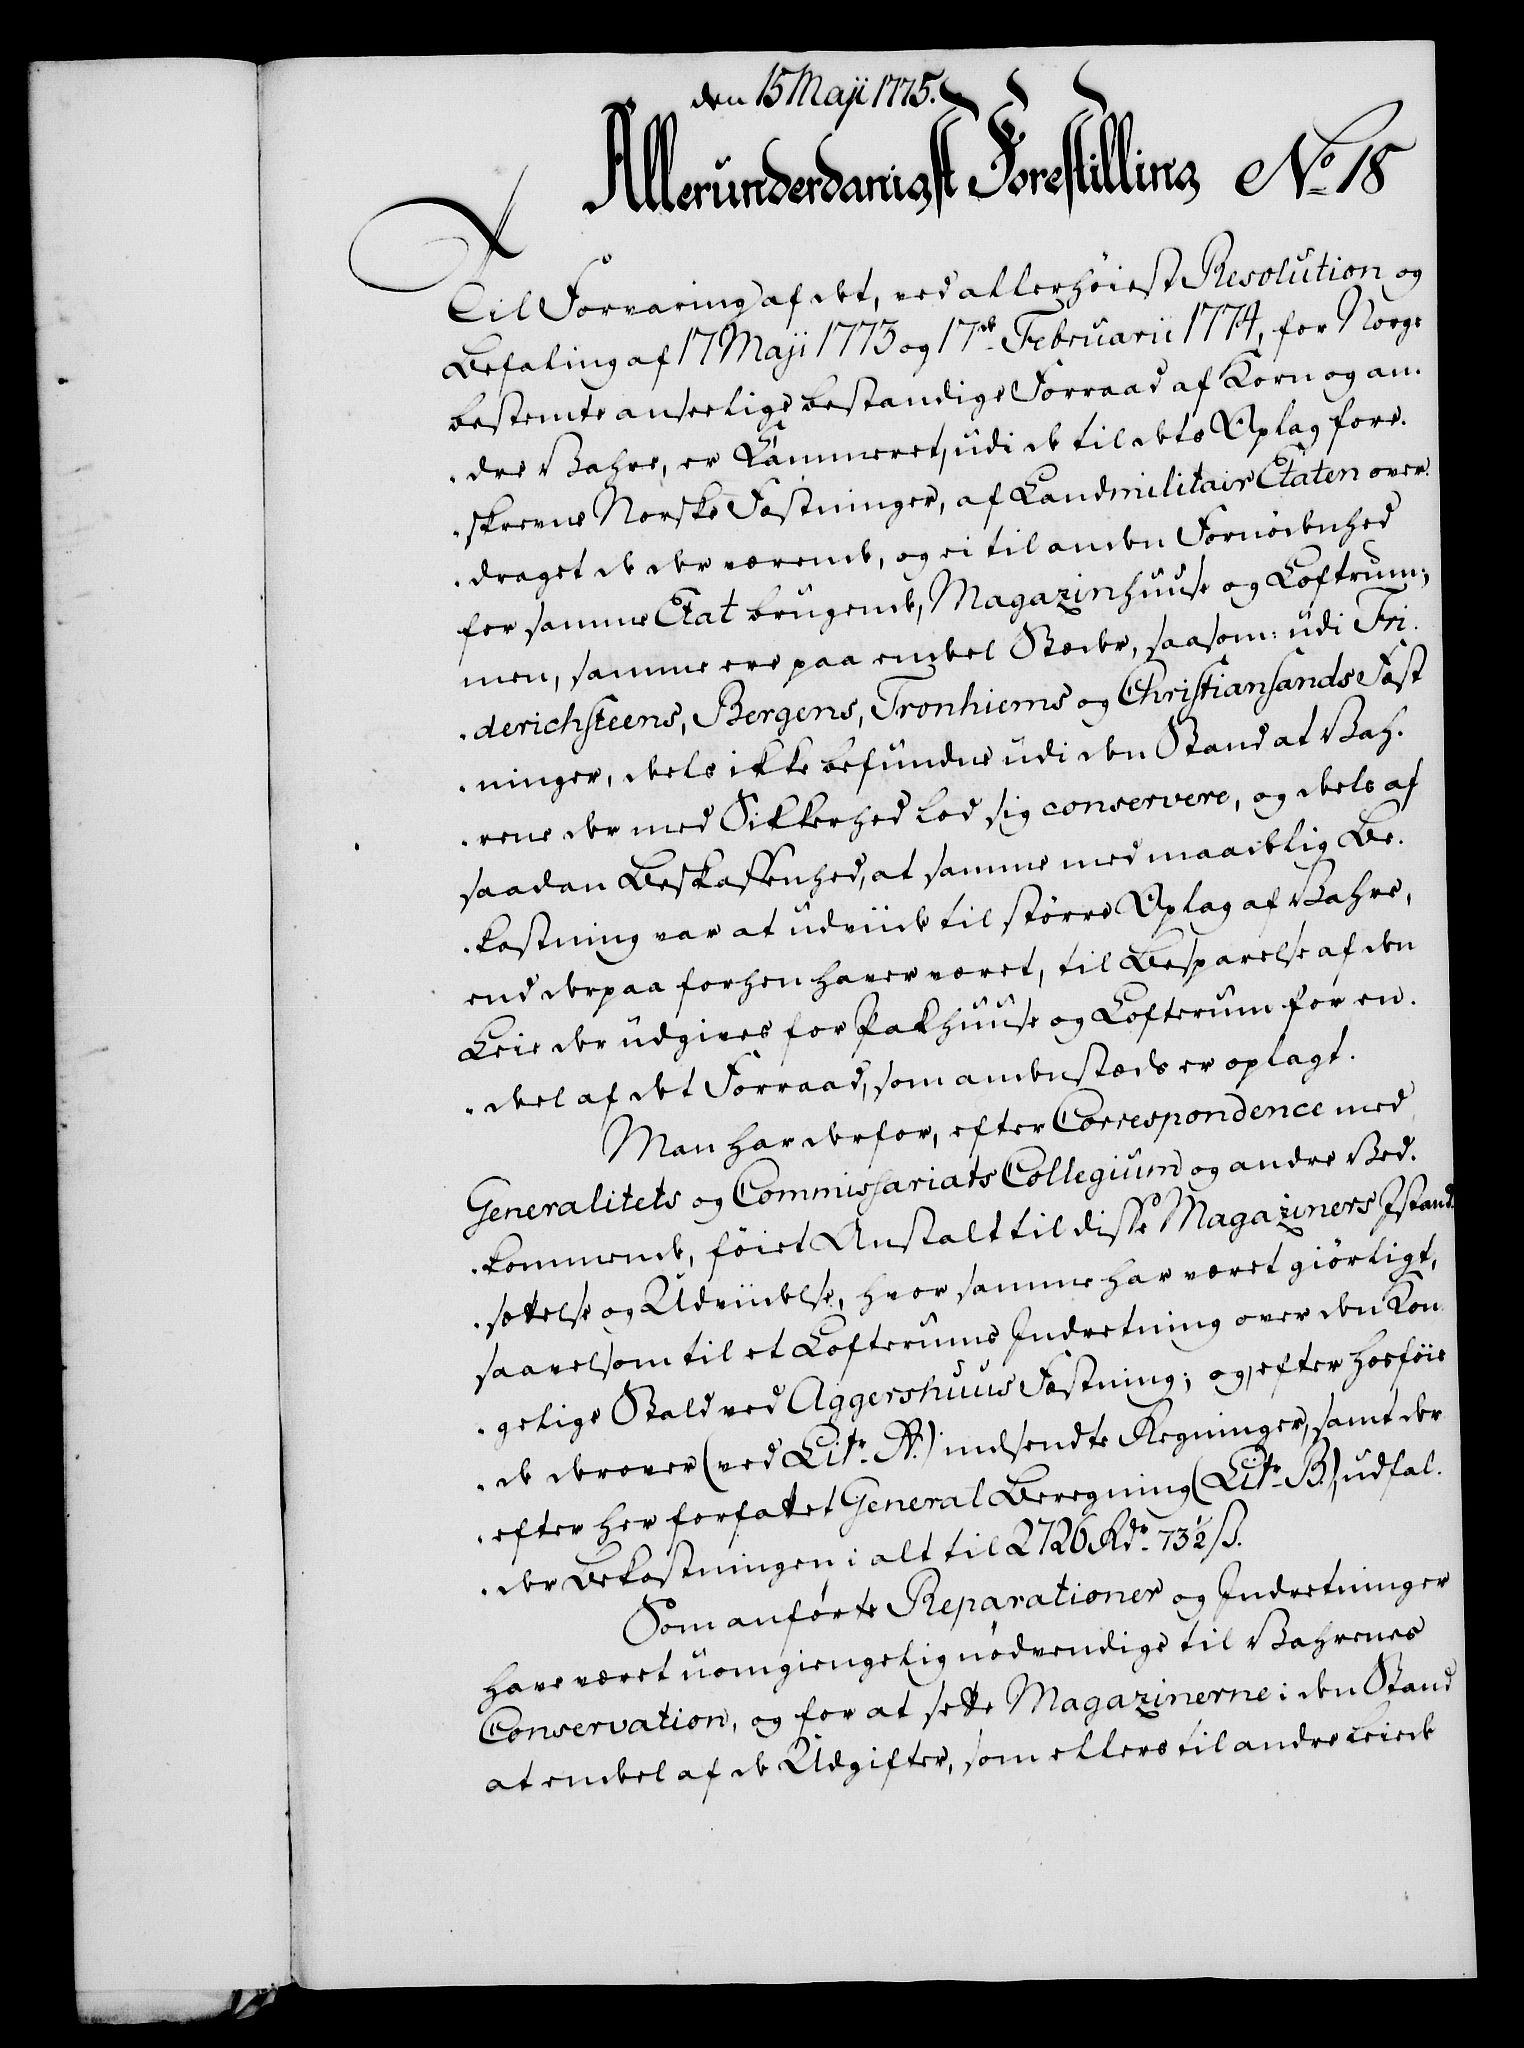 den 15 Maji 1775.
Allerunderdanigst Forestilling No 18
Til Forvaring af det, ved allerhöiest Resolution og
Befaling af 17 Maji 1773 og 17de Februarii 1774, for Norge
bestemte anseelige bestandige Forraad af Korn og an-
-dre Vahre, er Kammeret, udi de til dets Oplag fore-
-skrevne Norske Fæstninger, af Landmilitair Etaten over-
-draget de der værende, og ei til anden Fornödenhed
for samme Etat brugende, Magazinhuuse og Loftrum;
men, samme ere paa endeel Stæder, saasom: udi Fri-
-derichsteens, Bergens, Tronhiems og Christiansands Fæst
-ninger, deels ikke befundne udi den Stand at Vah-
-rene der med Sikkerhed lod sig conservere, og deels af
saadan Beskaffenhed, at samme med maadelig Be-
-kostning var at udviide til större Oplag af Vahre,
end derpaa forhen haver været, til Besparelse af den
Leie der udgives for Pakhuuse og Lofterum for en-
-deel af det Forraad, som andenstæds er oplagt.
Man har derfor, efter Correspondence med
Generalitets og Commissariats Collegium og andre Ved-
-kommende, föiet Anstalt til disse Magaziners Istand-
-sættelse og Udviidelse, hvor samme har været giörligt,
saavelsom til et Lofterums Indretning over den Kon-
-gelige Stald ved Aggershuus Fæstning; og, efter hosföie
-de derover (ved Litr. A.) indsendte Regninger, samt der
-efter her forfattet General Beregning (Litr. B.), udfal-
-der Bekostningen i alt til 2726 Rdr. 73½ ß.
Som anförte Reparationer og Indretninger
have været uomgiengelig nödvendige til Vahrenes
Conservation, og for at sette Magazinerne i den Stand
at endeel af de Udgifter, som ellers til andre leiede